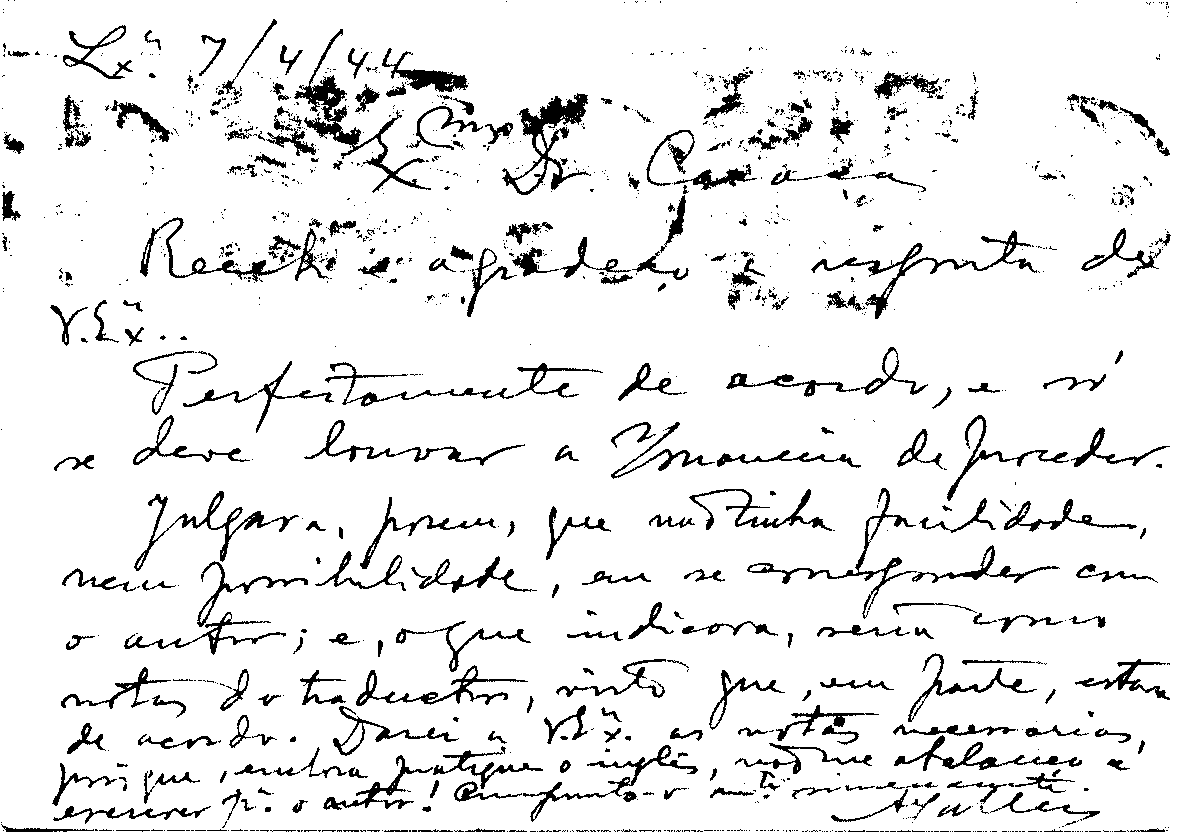 Lxª. 7/4/44
Exmo. Dr. Caraça
Recebi e agradeço a resposta de
V.Exª..
Perfeitamente de acordo, e só
se deve louvar a maneira de proceder.
Julgara, porem, que não tinha facilidade,
nem possibilidade, em se corresponder com
o autor; e, o que indicara, seria como
notas do traductor, visto que, em parte, estava
de acordo. Darei a V.Exª. as notas necessarias,
pois que, embora pratique o inglês, não me abalanço a
escrever pª. o autor! Cumprimenta-o muitº sinceramente.